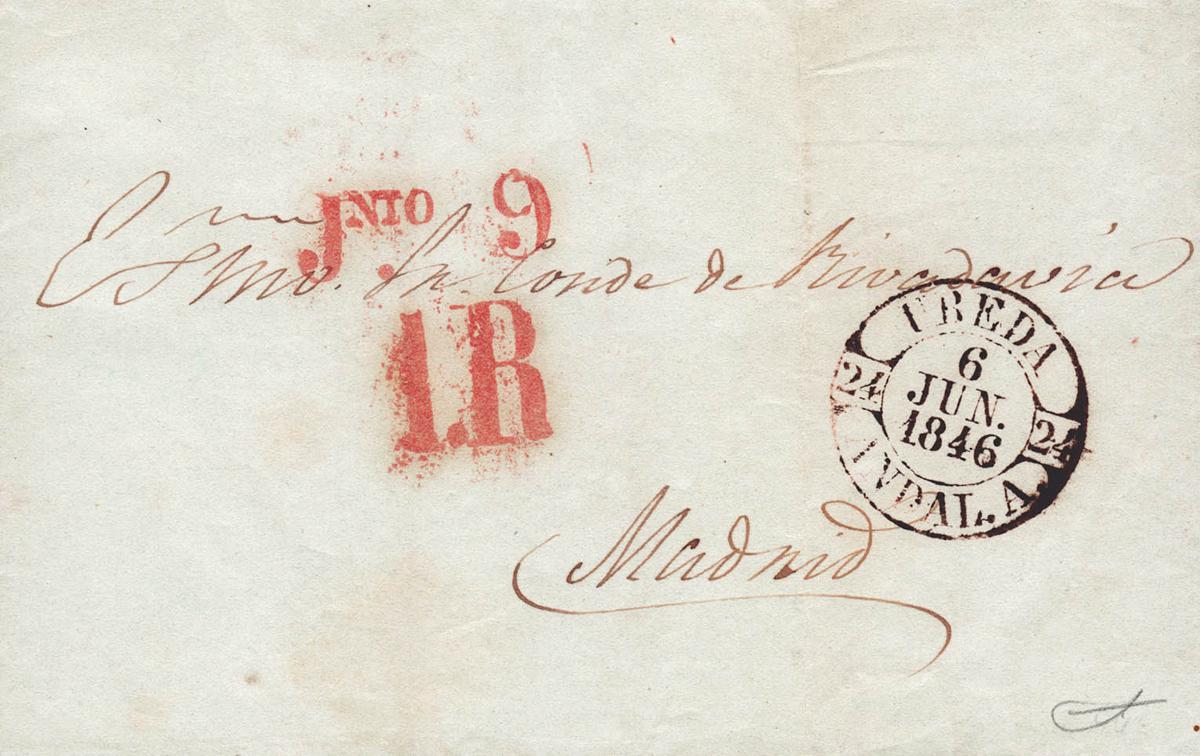 Jnio 9
Esmo. Sr. Conde de Rivadavia
1.R
UBEDA
24 6 JUN. 1846 24
ANDAL. A.
Madrid